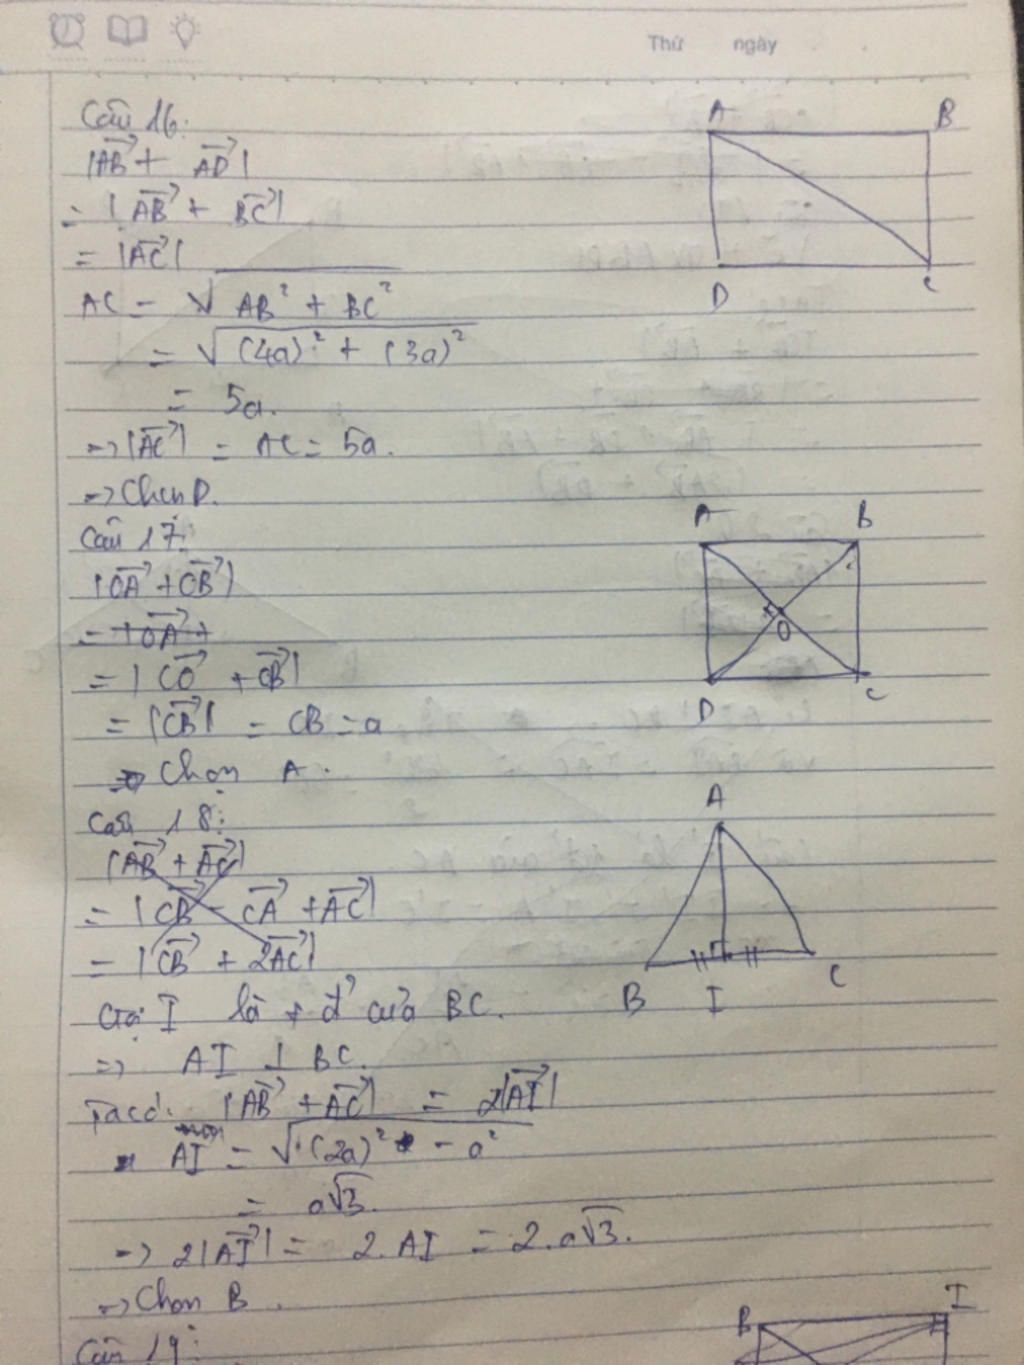 Thứ ngày
Câu 16:
|AB→ + AD→|
= |AB→ + BC→|
= |AC→|
AC = √AB² + BC²
= √(4a)² + (3a)²
= 5a.
=> |AC→| = AC = 5a.
=> Chọn D.
A B
D C
Câu 17:
|OA→ + OB→|
= |OA→ +
= |CO→ + OB→|
= |CB→| = CB = a
=> Chọn A.
A B
O
D C
Câu 18:
|AB→ + AC→|
= |CB→ - CA→ + AC→|
= |CB→ + 2AC→|
Gọi I là tđ' của BC.
=> AI ⊥ BC.
Ta có: |AB→ + AC→| = 2|AI→|
AI = √(2a)² - a²
= a√3.
=> 2|AI→| = 2.AI = 2.a√3.
=> Chọn B.
A
B I C
Câu 19:
B I